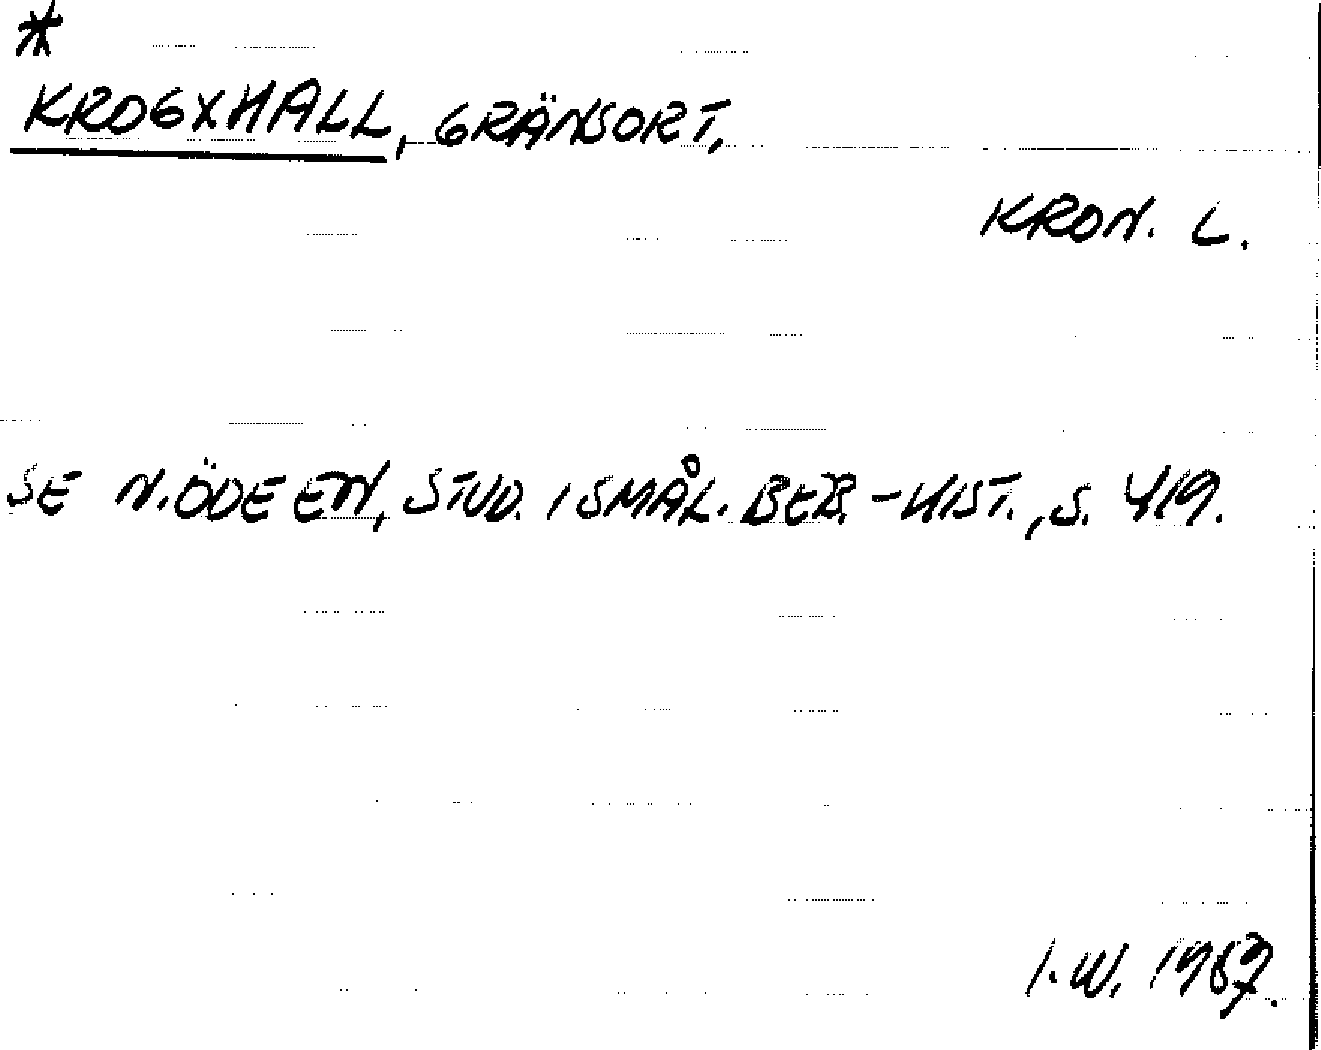 *
KROGXHALL, GRÄNSORT,
KRON. L.
SE N. ÖDEEN, STUD. I SMÅL. BEB.-HIST., S. 419.
I.W. 1987.